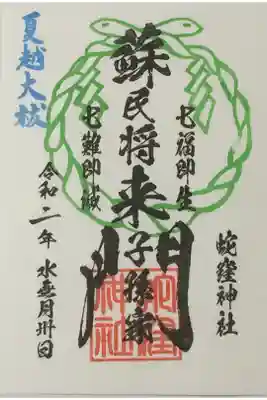 蛇窪神社
七福即生
蘇民将来子孫家門
七難即滅
夏越大祓
令和二年 水無月卅日
蛇窪
神社